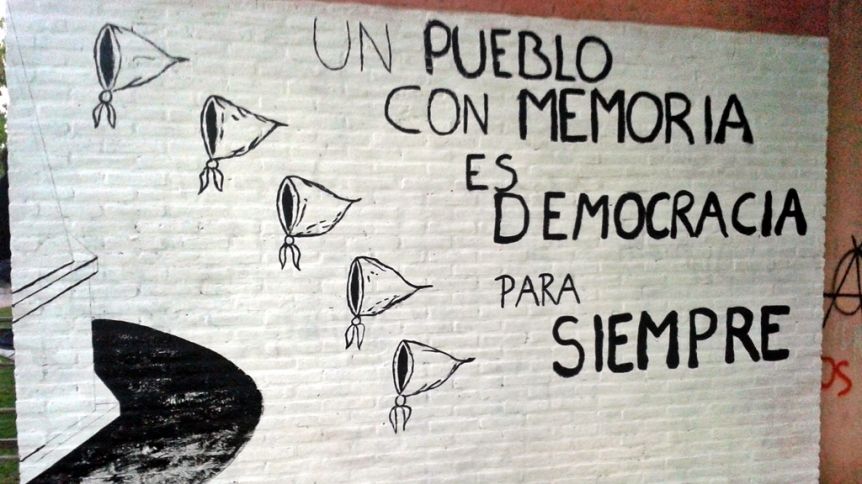 UN PUEBLO
CON MEMORIA
ES
DEMOCRACIA
PARA
SIEMPRE
OS